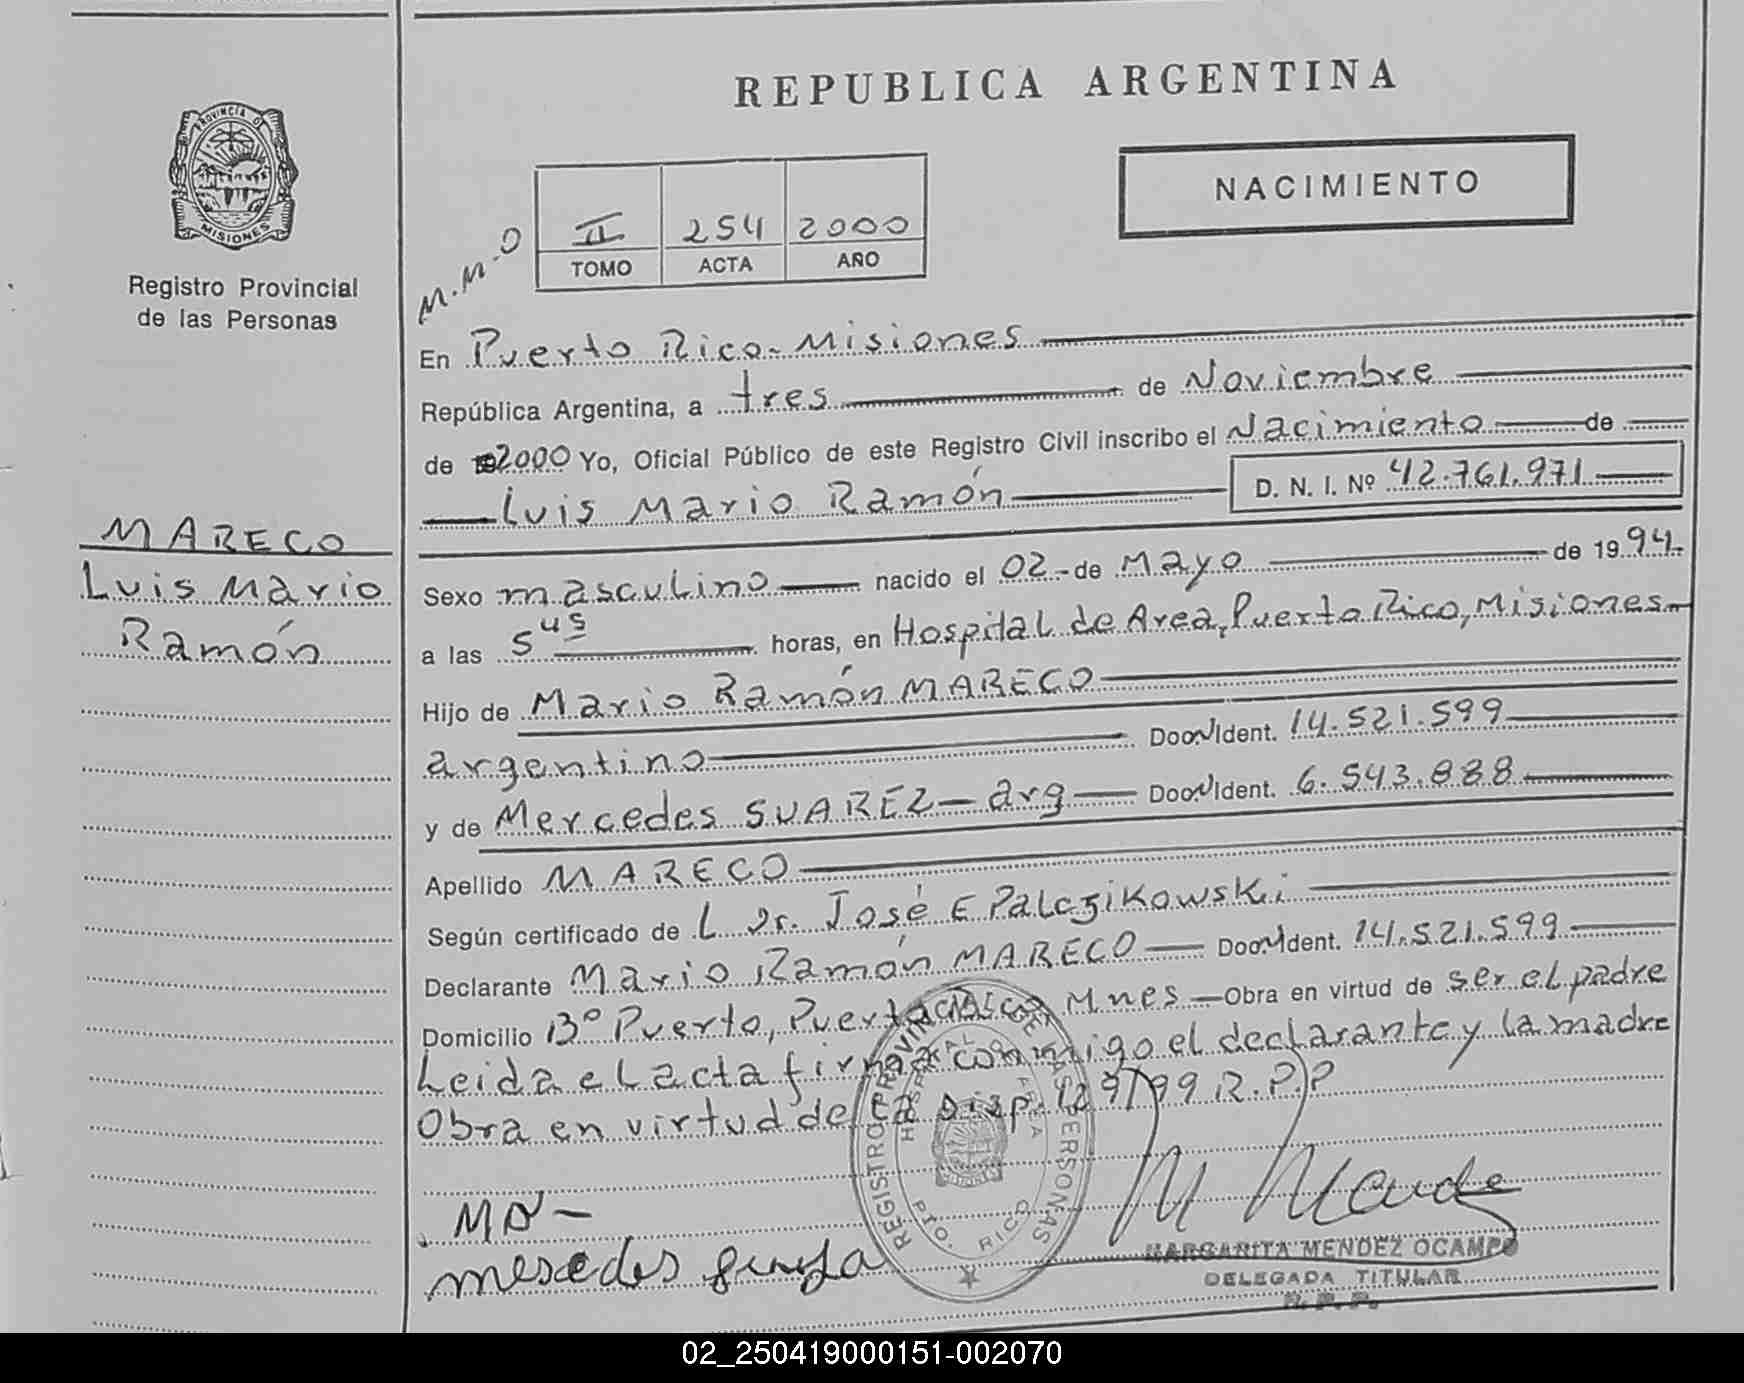 REPUBLICA ARGENTINA
PROVINCIA D
MISIONES
Registro Provincial
de las Personas
NACIMIENTO
M.M.O
II 254 2000
TOMO ACTA AÑO
En Puerto Rico - Misiones
República Argentina, a tres de Noviembre
de 2000 Yo, Oficial Público de este Registro Civil inscribo el Nacimiento de
Luis Mario Ramón D. N. I. Nº 42.761.971
MARECO
Luis Mario
Ramón
Sexo masculino nacido el 02 - de Mayo de 1994.
a las 5 45 horas, en Hospital de Area, Puerto Rico, Misiones
Hijo de Mario Ramón MARECO
argentino Ident. 14.521.599
y de Mercedes SUAREZ - arg Ident. 6.543.888
Apellido MARECO
Según certificado de L Dr. José E Palczikowski
Declarante Mario Ramón MARECO Ident. 14.521.599
Domicilio Bº Puerto, Puerto Rico, Mnes - Obra en virtud de ser el padre
Leida el acta firma conmigo el declarante y la madre
Obra en virtud de la Disp. 129/99 R.P.P
REGISTRO PROVINCIAL DE LAS PERSONAS
HOSPITAL DE AREA
PTO. RICO
MARGARITA MENDEZ OCAMPO
DELEGADA TITULAR
R. P. P.
02_250419000151-002070